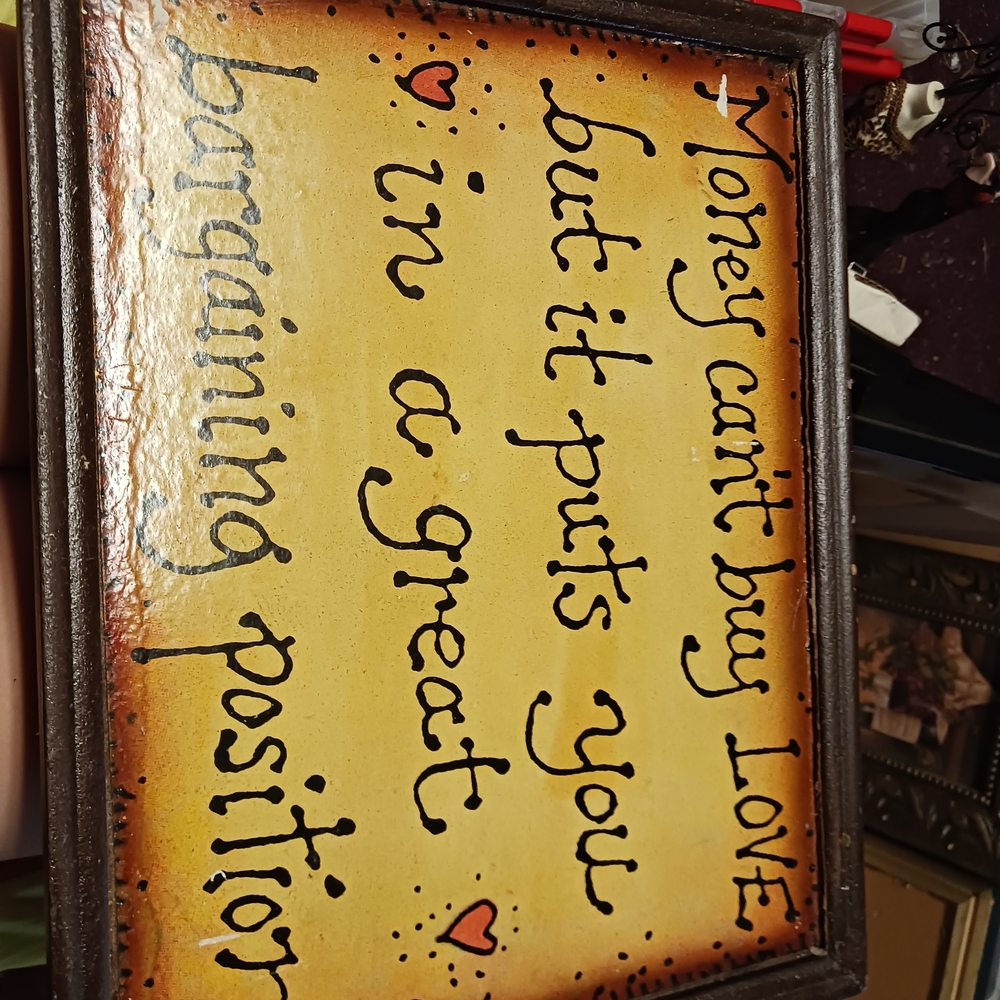 Money can't buy LOVE
but it puts you
in a great
bargaining position